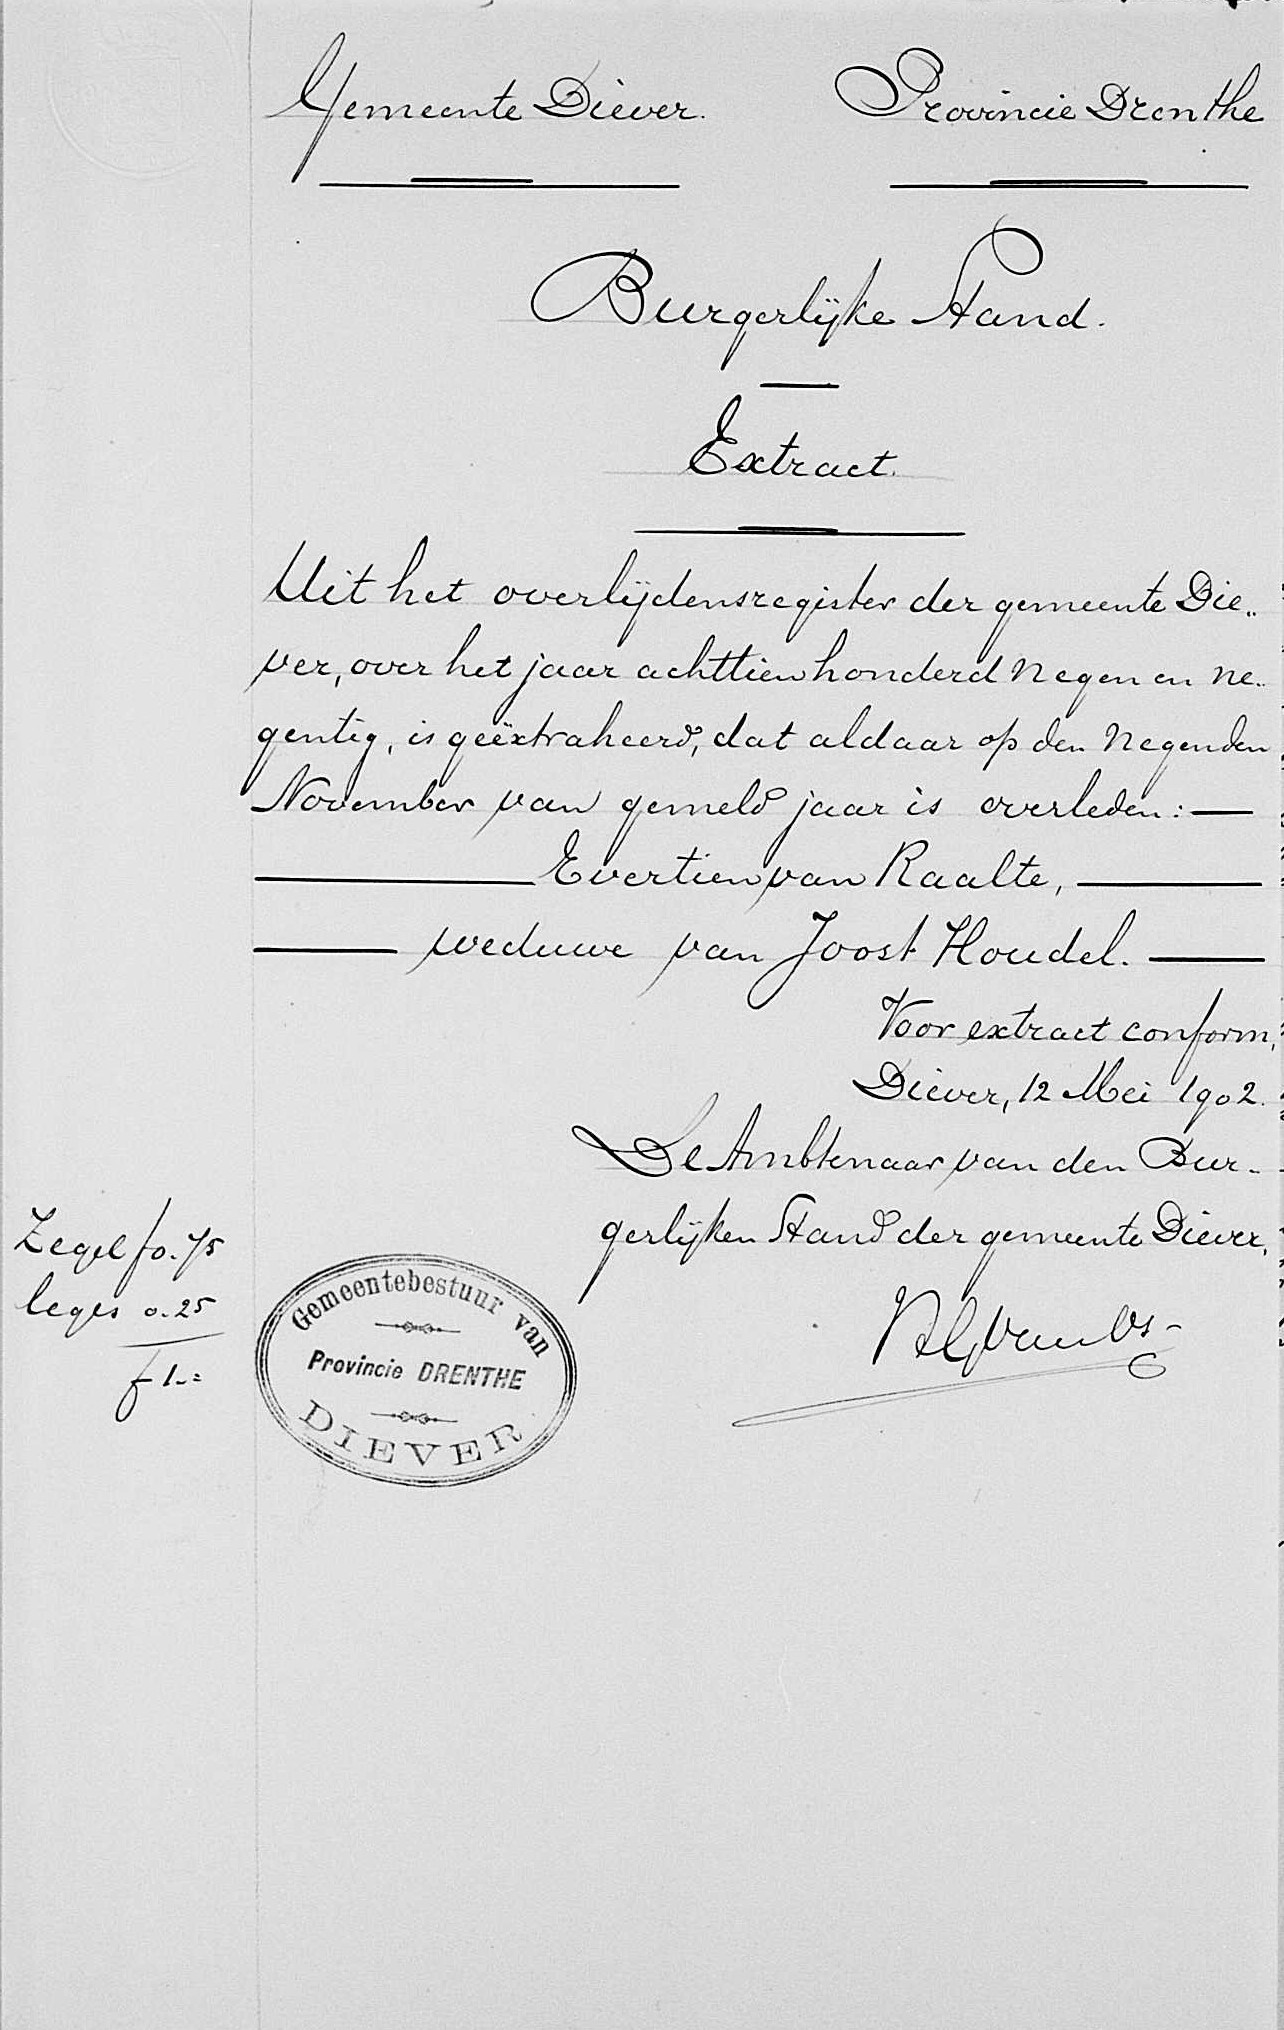 Gemeente Diever. Provincie Drenthe
Burgerlijke Stand.
Extract.
Uit het overlijdensregister der gemeente Die„
ver, over het jaar achttienhonderd negen en ne„
gentig, is geëxtraheerd, dat aldaar op den negenden
November van gemeld jaar is overleden: —
Evertien van Raalte,
weduwe van Joost Houdel.
Voor extract conform,
Diever, 12 Mei 1902.
De Ambtenaar van den Bur-
gerlijken Stand der gemeente Diever,
Zegel f 0.75
leges 0.25
f 1.-
Gemeentebestuur van
Provincie DRENTHE
DIEVER